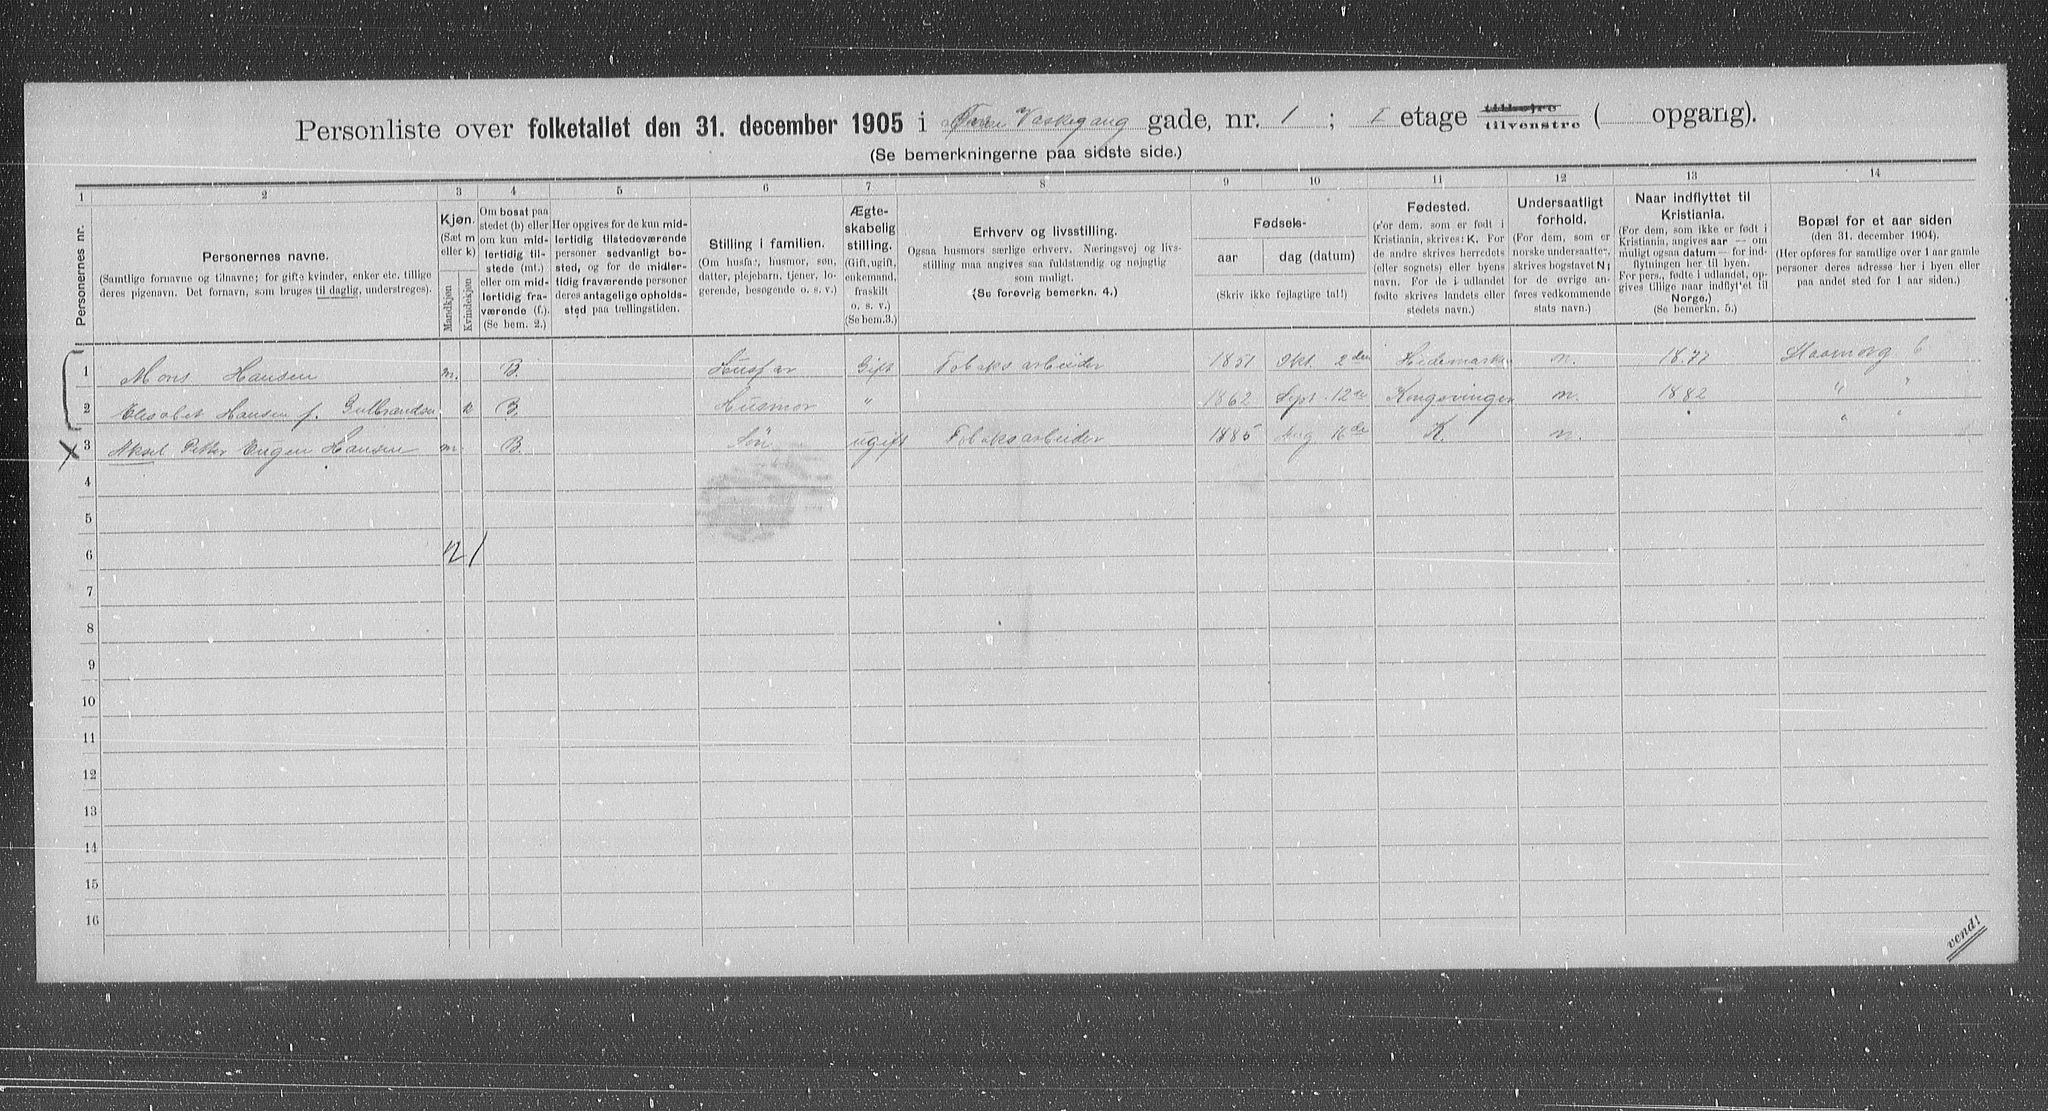 Personliste over folketallet den 31. december 1905 i Øvre Vaskegang gade, nr. 1 ; I etage tilhøjre tilvenstre ( opgang).
(Se bemerkningerne paa sidste side.)
1 2 3 4 5 6 7 8 9 10 11 12 13 14
Personernes nr.
Personernes navne.
(Samtlige fornavne og tilnavne; for gifte kvinder, enker etc. tillige
deres pigenavn. Det fornavn, som bruges til daglig, understreges).
Kjøn.
(Sæt m
eller k)
Mandkjøn
Kvindekjøn
Om bosat paa
stedet (b) eller
om kun mid-
lertidig til-
stede (mt.)
eller om mid-
lertidig fra-
værende (f.).
(Se bem. 2.)
Her opgives for de kun mid-
lertidig tilstedeværende
personer sedvanligt bo-
sted, og for de midler-
tidig fraværende personer
deres antagelige opholds-
sted paa tællingstiden.
Stilling i familien.
(Om husfar, husmor, søn,
datter, plejebarn, tjener, lo-
gerende, besøgende o. s. v.)
Ægte-
skabelig
stilling.
(Gift, ugift,
enkemand,
fraskilt
o. s. v.)
(Se bem.3.)
Erhverv og livsstilling.
Ogsaa husmors særlige erhverv. Næringsvej og livs-
stilling maa angives saa fuldstændig og nøjagtig
som muligt.
(Se forøvrig bemerkn. 4.)
Fødsels-
aar
dag (datum)
(Skriv ikke fejlagtige tal!)
Fødested.
(For dem, som er født i
Kristiania, skrives: K. For
de andre skrives herredets
(eller sognets) eller byens
navn. For de i udlandet
fødte skrives landets eller
stedets navn.)
Undersaatligt
forhold.
(For dem, som er
norske undersaatter,
skrives bogstavet N;
for de øvrige an-
føres vedkommende
stats navn.)
Naar indflyttet til
Kristiania.
(For dem, som ikke er født i
Kristiania, angives aar — om
muligt ogsaa datum — for ind-
flytningen her til byen.
For pers., fødte i udlandet, op-
gives tillige naar indflyttet til
Norge.)
(Se bemerkn. 5.)
Bopæl for et aar siden
(den 31. december 1904).
(Her opføres for samtlige over 1 aar gamle
personer deres adresse her i byen eller
paa andet sted for 1 aar siden.)
1 Mons Hansen m. B. Husfar Gift Tobaksarbeider 1851 Okt. 2den Hedemarken n. 1877 6
2 Elisabet Hansen f. Gulbrandsen k B. Husmor " 1862 Sept. 12te Kongsvinger n. 1882 " "
3 Aksel Petter Eugen Hansen m. B. Søn ugift Tobaksarbeider 1885 Aug 16de K. n. " "
4
5
6 2 1
7
8
9
10
11
12
13
14
15
16
vend!